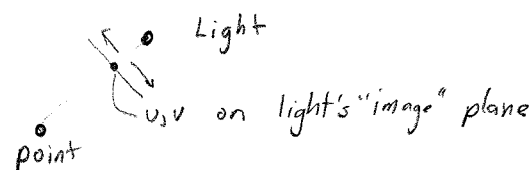 Light
u,v on light's "image" plane
point